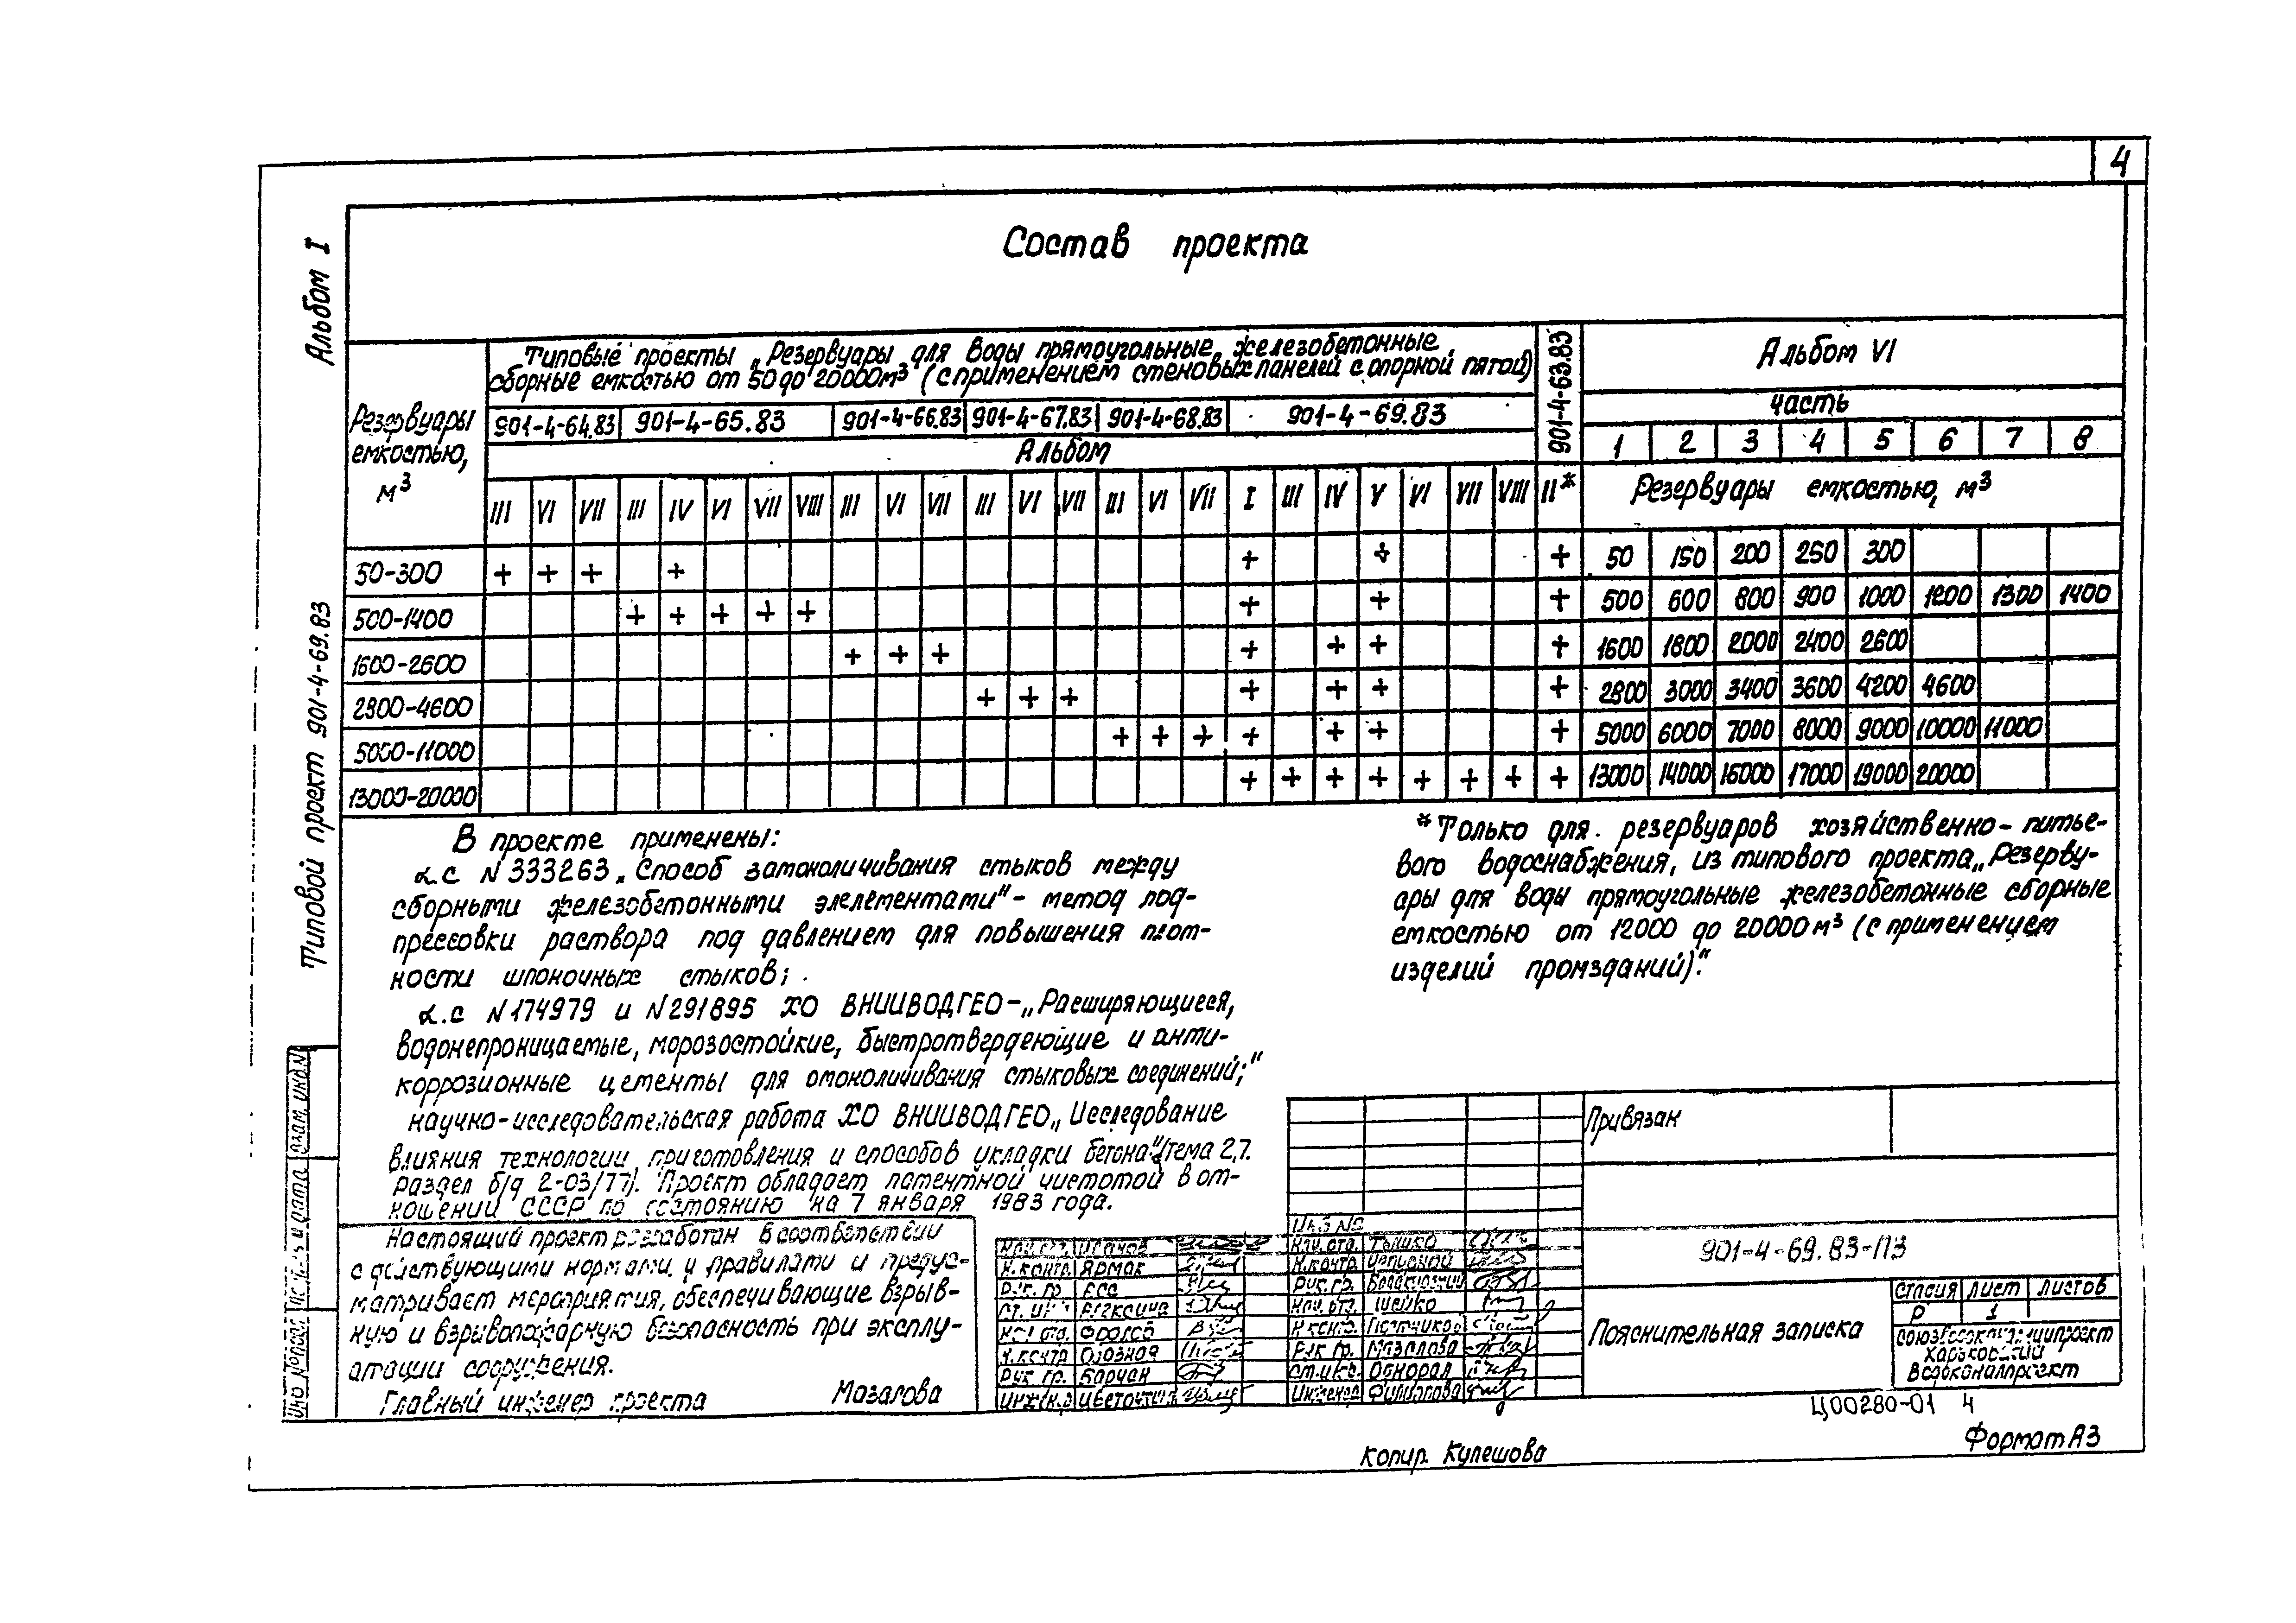 4
Альбом I
Типовой проект 901-4-69.83
Состав проекта
Резервуары емкостью, м³
Типовые проекты „Резервуары для воды прямоугольные железобетонные
сборные емкостью от 50 до 20000м³ (с применением стеновых панелей с опорной пятой)
901-4-64.83 901-4-65.83 901-4-66.83 901-4-67.83 901-4-68.83 901-4-69.83 901-4-63.83
Альбом
III VI VII III IV VI VII VIII III VI VII III VI VII III VI VII I III IV V VI VII VIII II*
Альбом VI
часть
1 2 3 4 5 6 7 8
Резервуары емкостью, м³
50-300 + + + + + + + 50 150 200 250 300
500-1400 + + + + + + + + 500 600 800 900 1000 1200 1300 1400
1600-2600 + + + + + + + 1600 1800 2000 2400 2600
2800-4600 + + + + + + + 2800 3000 3400 3600 4200 4600
5000-11000 + + + + + + + 5000 6000 7000 8000 9000 10000 11000
13000-20000 + + + + + + + + 13000 14000 16000 17000 19000 20000
В проекте применены:
а.с N333263 „Способ замоноличивания стыков между
сборными железобетонными элелементами“ - метод под-
прессовки раствора под давлением для повышения плот-
ности шпоночных стыков;
а.с N174979 и N291895 ХО ВНИИВОДГЕО-„Расширяющиеся,
водонепроницаемые, морозостойкие, быстротвердеющие и анти-
коррозионные цементы для омоноличивания стыковых соединений;“
научно-исследовательская работа ХО ВНИИВОДГЕО „Исследование
влияния технологии приготовления и способов укладки бетона“ /тема 2.7.
раздел б/д 2-03/77). Проект обладает патентной чистотой в от-
ношении СССР по состоянию на 7 января 1983 года.
*Только для резервуаров хозяйственно-питье-
вого водоснабжения, из типового проекта „Резерву-
ары для воды прямоугольные железобетонные сборные
емкостью от 12000 до 20000м³ (с применением
изделий промзданий).“
Настоящий проект разработан в соответствии
с действующими нормами и правилами и предус-
матривает мероприятия, обеспечивающие взрыв-
ную и взрывопожарную безопасность при эксплу-
атации сооружения.
Главный инженер проекта Мазалова
Взам. инв. N
Инв N подл
Привязан
Инв NО
Нач. отд. Иванов
Н.контр. Ярмак
Рук. гр.
Ст. инж Алексина
Нач отд. Фролов
Н.контр
Рук гр. Барчан
Нач. отд.
Н.контр.
Рук. гр.
Нач. отд. Шейко
Н контр.
Рук гр. Мазалова
Ст. инж. Однорал
Инженер Филиппова
901-4-69.83-ПЗ
Пояснительная записка
Стадия Лист Листов
Р 1
Союзводоканалниипроект
Харьковский
Водоканалпроект
Ц00280-01 4
Копир. Кулешова
Формат А3